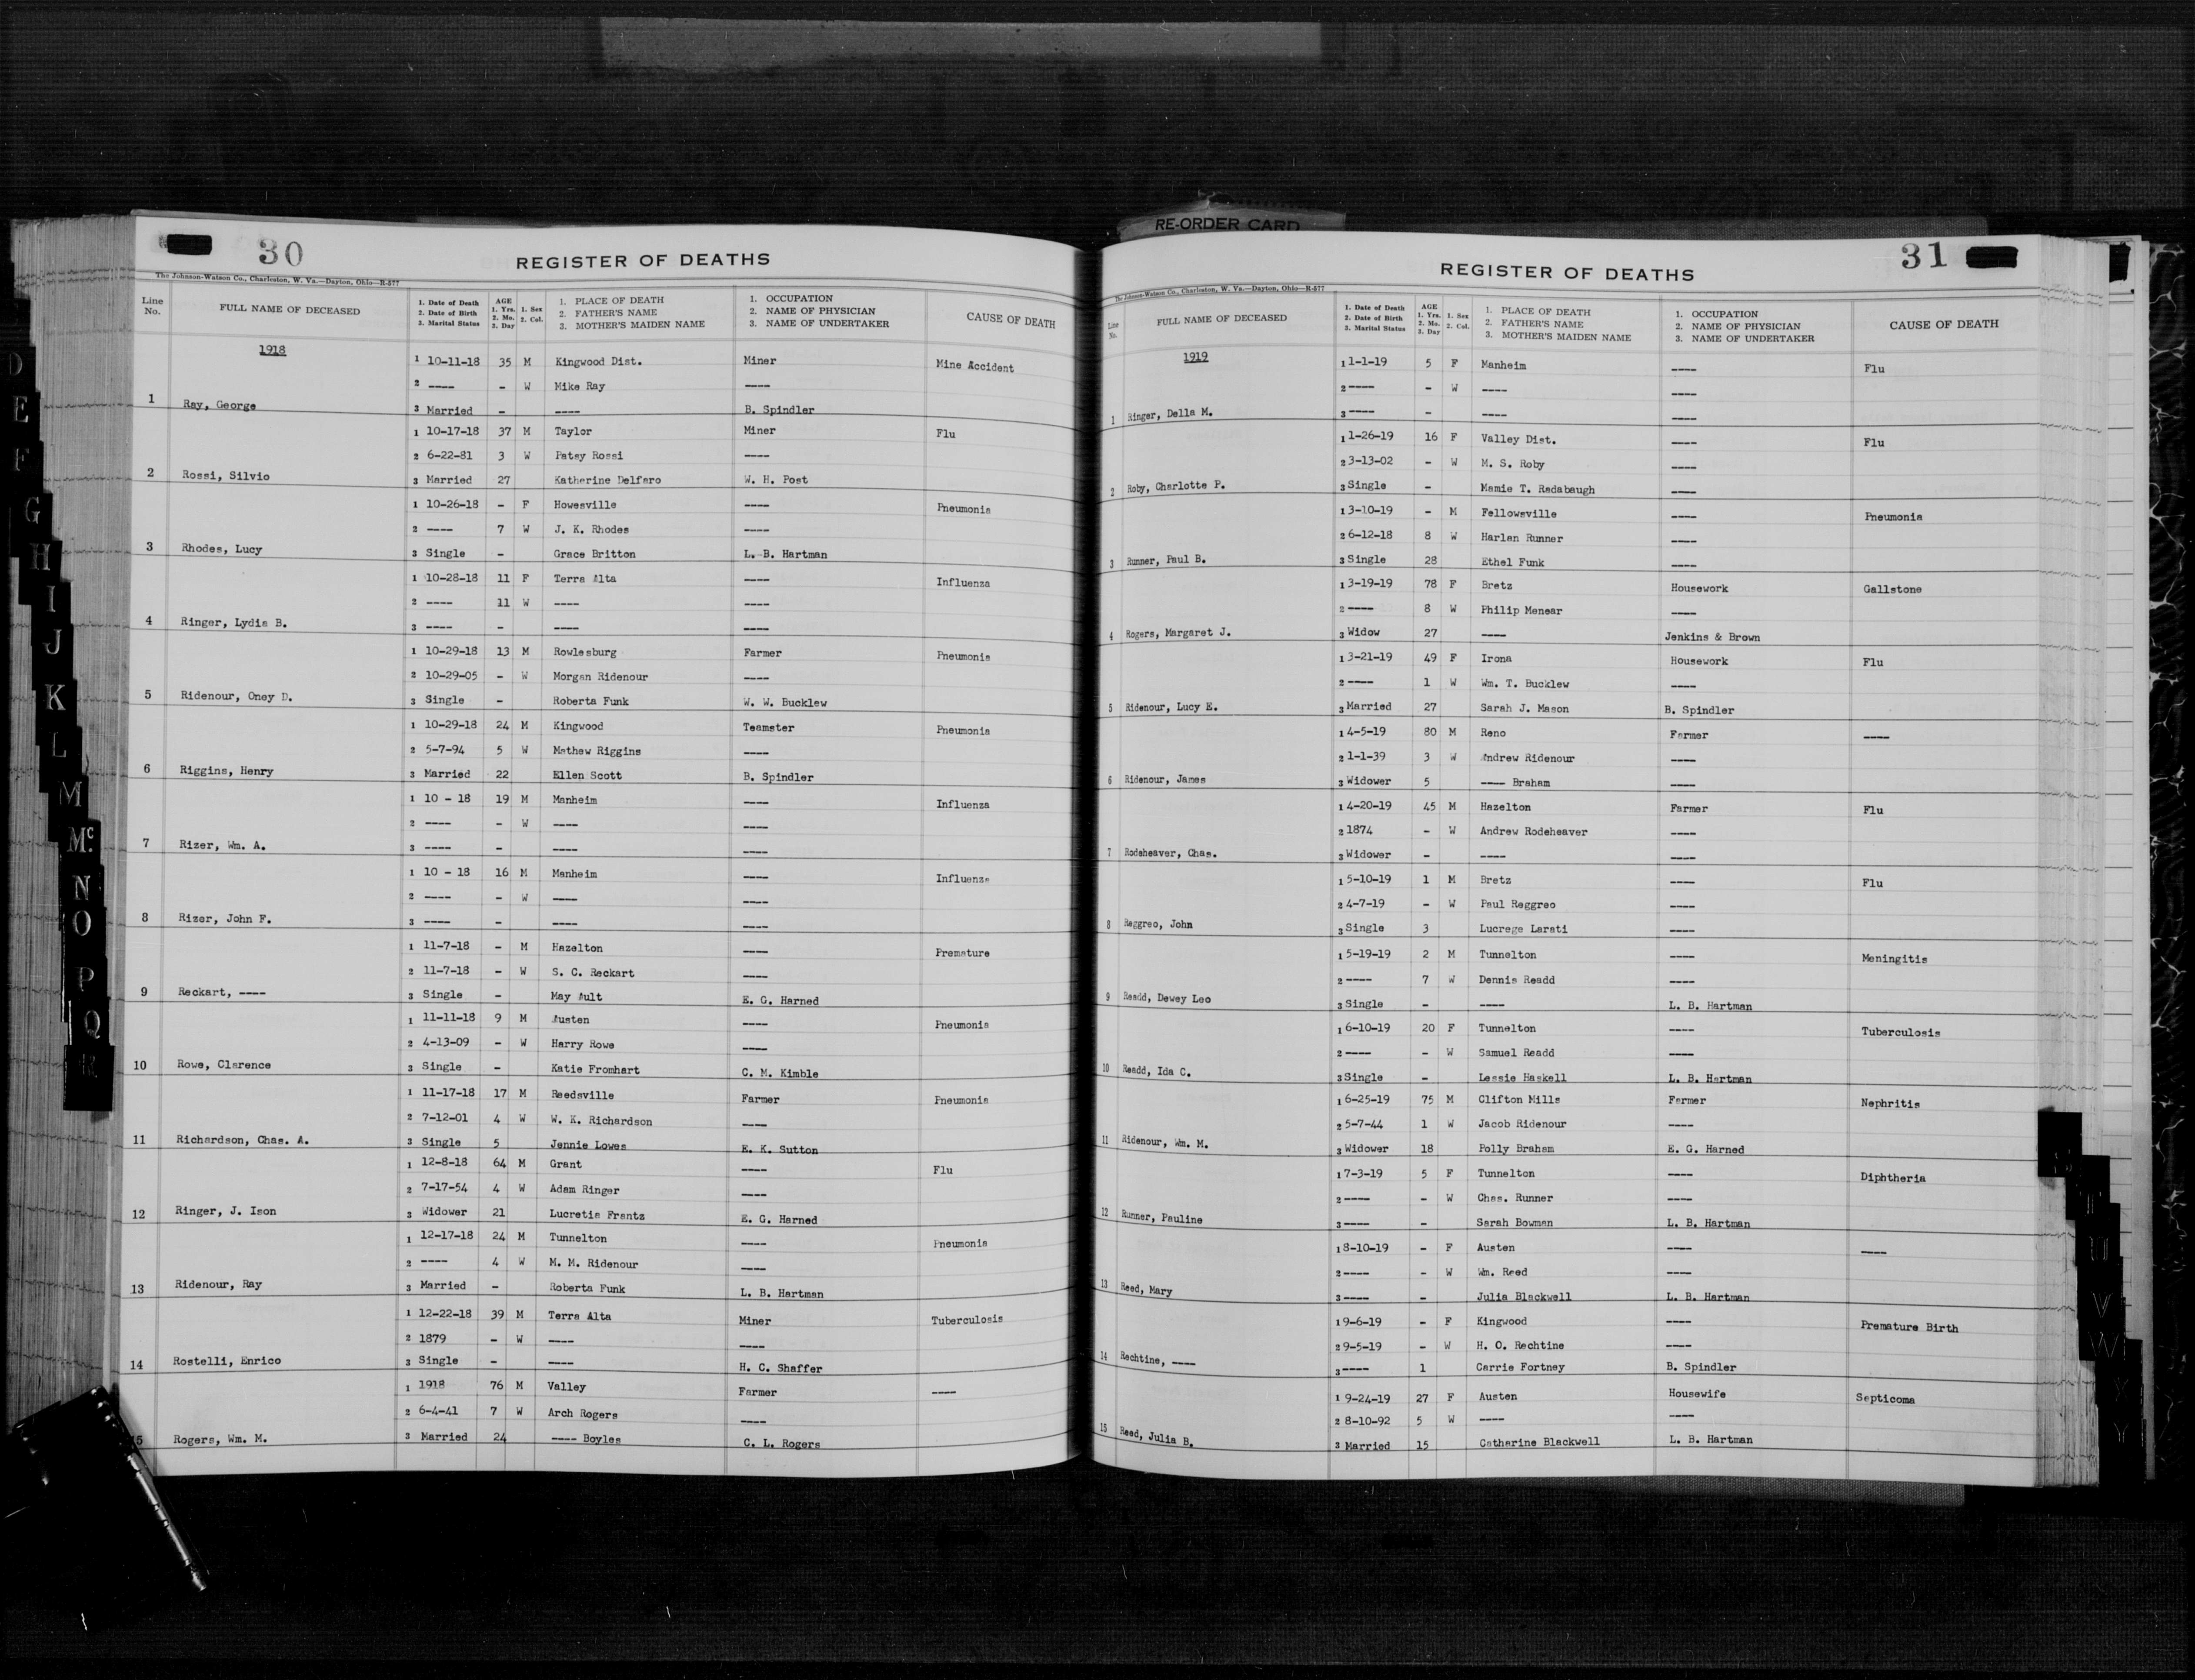 RE-ORDER CARD
30
REGISTER OF DEATHS
The Johnson-Watson Co., Charleston, W. Va.—Dayton, Ohio—R-577
Line No. FULL NAME OF DECEASED 1. Date of Death 2. Date of Birth 3. Marital Status AGE 1. Yrs. 2. Mo. 3. Day 1. Sex 2. Col. 1. PLACE OF DEATH 2. FATHER'S NAME 3. MOTHER'S MAIDEN NAME 1. OCCUPATION 2. NAME OF PHYSICIAN 3. NAME OF UNDERTAKER CAUSE OF DEATH
1918
1 10-11-18 35 M Kingwood Dist. Miner Mine Accident
2 ---- - W Mike Ray ----
1 Ray, George 3 Married - ---- B. Spindler
1 10-17-18 37 M Taylor Miner Flu
2 6-22-81 3 W Patsy Rossi ----
2 Rossi, Silvio 3 Married 27 Katherine Delfaro W. H. Post
1 10-26-18 - F Howesville ---- Pneumonia
2 ---- 7 W J. K. Rhodes ----
3 Rhodes, Lucy 3 Single - Grace Britton L. B. Hartman
1 10-28-18 11 F Terra Alta ---- Influenza
2 ---- 11 W ---- ----
4 Ringer, Lydia B. 3 ---- - ---- ----
1 10-29-18 13 M Rowlesburg Farmer Pneumonia
2 10-29-05 - W Morgan Ridenour ----
5 Ridenour, Oney D. 3 Single - Roberta Funk W. W. Bucklew
1 10-29-18 24 M Kingwood Teamster Pneumonia
2 5-7-94 5 W Mathew Riggins ----
6 Riggins, Henry 3 Married 22 Ellen Scott B. Spindler
1 10 - 18 19 M Manheim ---- Influenza
2 ---- - W ---- ----
7 Rizer, Wm. A. 3 ---- - ---- ----
1 10 - 18 16 M Manheim ---- Influenza
2 ---- - W ---- ----
8 Rizer, John F. 3 ---- - ---- ----
1 11-7-18 - M Hazelton ---- Premature
2 11-7-18 - W S. C. Reckart ----
9 Reckart, ---- 3 Single - May Ault E. G. Harned
1 11-11-18 9 M Austen ---- Pneumonia
2 4-13-09 - W Harry Rowe ----
10 Rowe, Clarence 3 Single - Katie Fromhart C. M. Kimble
1 11-17-18 17 M Reedsville Farmer Pneumonia
2 7-12-01 4 W W. K. Richardson ----
11 Richardson, Chas. A. 3 Single 5 Jennie Lowes E. K. Sutton
1 12-8-18 64 M Grant ---- Flu
2 7-17-54 4 W Adam Ringer ----
12 Ringer, J. Ison 3 Widower 21 Lucretia Frantz E. G. Harned
1 12-17-18 24 M Tunnelton ---- Pneumonia
2 ---- 4 W M. M. Ridenour ----
13 Ridenour, Ray 3 Married - Roberta Funk L. B. Hartman
1 12-22-18 39 M Terra Alta Miner Tuberculosis
2 1879 - W ---- ----
14 Rostelli, Enrico 3 Single - ---- H. C. Shaffer
1 1918 76 M Valley Farmer ----
2 6-4-41 7 W Arch Rogers ----
15 Rogers, Wm. M. 3 Married 24 ---- Boyles C. L. Rogers
D
E
F
G
H
I
J
K
L
M
Mc
N
O
P
Q
R
31
REGISTER OF DEATHS
The Johnson-Watson Co., Charleston, W. Va.—Dayton, Ohio—R-577
Line No. FULL NAME OF DECEASED 1. Date of Death 2. Date of Birth 3. Marital Status AGE 1. Yrs. 2. Mo. 3. Day 1. Sex 2. Col. 1. PLACE OF DEATH 2. FATHER'S NAME 3. MOTHER'S MAIDEN NAME 1. OCCUPATION 2. NAME OF PHYSICIAN 3. NAME OF UNDERTAKER CAUSE OF DEATH
1919
1 1-1-19 5 F Manheim ---- Flu
2 ---- - W ---- ----
1 Ringer, Della M. 3 ---- - ---- ----
1 1-26-19 16 F Valley Dist. ---- Flu
2 3-13-02 - W M. S. Roby ----
2 Roby, Charlotte P. 3 Single - Mamie T. Radabaugh ----
1 3-10-19 - M Fellowsville ---- Pneumonia
2 6-12-18 8 W Harlan Runner ----
3 Runner, Paul B. 3 Single 28 Ethel Funk ----
1 3-19-19 78 F Bretz Housework Gallstone
2 ---- 8 W Philip Menear ----
4 Rogers, Margaret J. 3 Widow 27 ---- Jenkins & Brown
1 3-21-19 49 F Irona Housework Flu
2 ---- 1 W Wm. T. Bucklew ----
5 Ridenour, Lucy E. 3 Married 27 Sarah J. Mason B. Spindler
1 4-5-19 80 M Reno Farmer ----
2 1-1-39 3 W Andrew Ridenour ----
6 Ridenour, James 3 Widower 5 ---- Braham ----
1 4-20-19 45 M Hazelton Farmer Flu
2 1874 - W Andrew Rodeheaver ----
7 Rodeheaver, Chas. 3 Widower - ---- ----
1 5-10-19 1 M Bretz ---- Flu
2 4-7-19 - W Paul Reggreo ----
8 Reggreo, John 3 Single 3 Lucrege Larati ----
1 5-19-19 2 M Tunnelton ---- Meningitis
2 ---- 7 W Dennis Readd ----
9 Readd, Dewey Leo 3 Single - ---- L. B. Hartman
1 6-10-19 20 F Tunnelton ---- Tuberculosis
2 ---- - W Samuel Readd ----
10 Readd, Ida C. 3 Single - Lessie Haskell L. B. Hartman
1 6-25-19 75 M Clifton Mills Farmer Nephritis
2 5-7-44 1 W Jacob Ridenour ----
11 Ridenour, Wm. M. 3 Widower 18 Polly Braham E. G. Harned
1 7-3-19 5 F Tunnelton ---- Diphtheria
2 ---- - W Chas. Runner ----
12 Runner, Pauline 3 ---- - Sarah Bowman L. B. Hartman
1 8-10-19 - F Austen ---- ----
2 ---- - W Wm. Reed ----
13 Reed, Mary 3 ---- - Julia Blackwell L. B. Hartman
1 9-6-19 - F Kingwood ---- Premature Birth
2 9-5-19 - W H. O. Rechtine ----
14 Rechtine, ---- 3 ---- 1 Carrie Fortney B. Spindler
1 9-24-19 27 F Austen Housewife Septicoma
2 8-10-92 5 W ---- ----
15 Reed, Julia B. 3 Married 15 Catharine Blackwell L. B. Hartman
U
V
W
Y